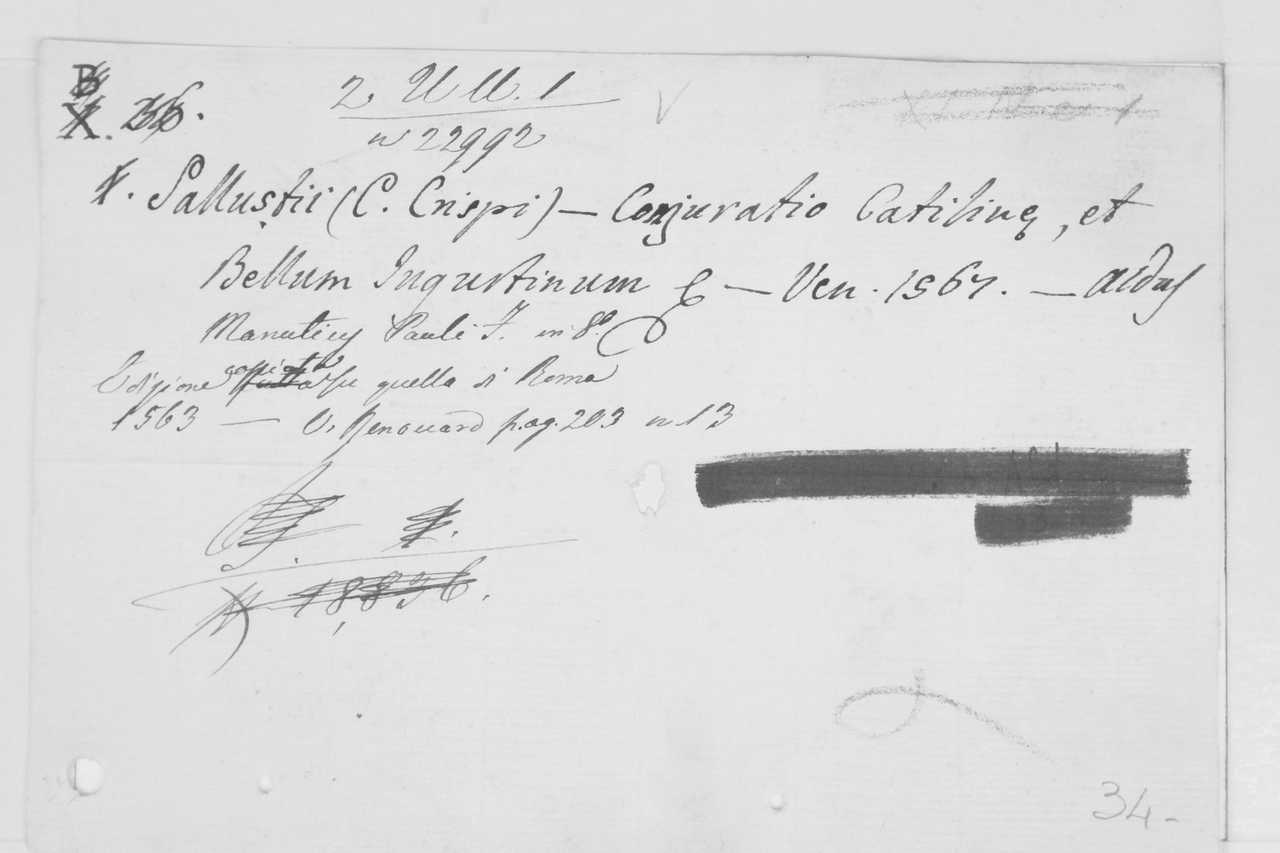 B
X. 36.
2. U U. 1
n 22992
Sallustii (C. Crispi) — Conjuratio Catilinę, et
Bellum Jugurtinum & — Ven. 1567. — Aldus
Manutius Pauli F. in 8.º
Edizione copiata su quella di Roma
1563 — V. Renouard pag. 203 n. 13
N 18,836.
34-